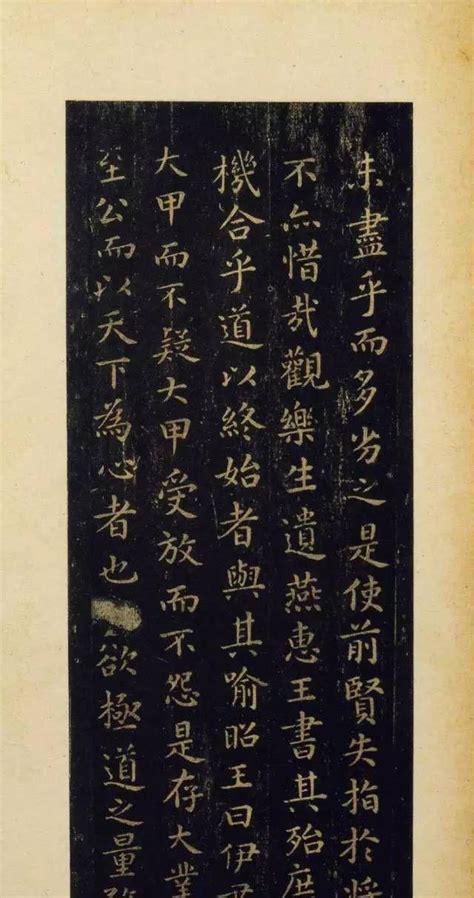 未盡乎而多劣之是使前賢失指於將
不亦惜哉觀樂生遺燕惠王書其殆庶
機合乎道以終始者與其喻昭王曰伊尹
大甲而不疑大甲受放而不怨是存大業
至公而以天下為心者也欲極道之量